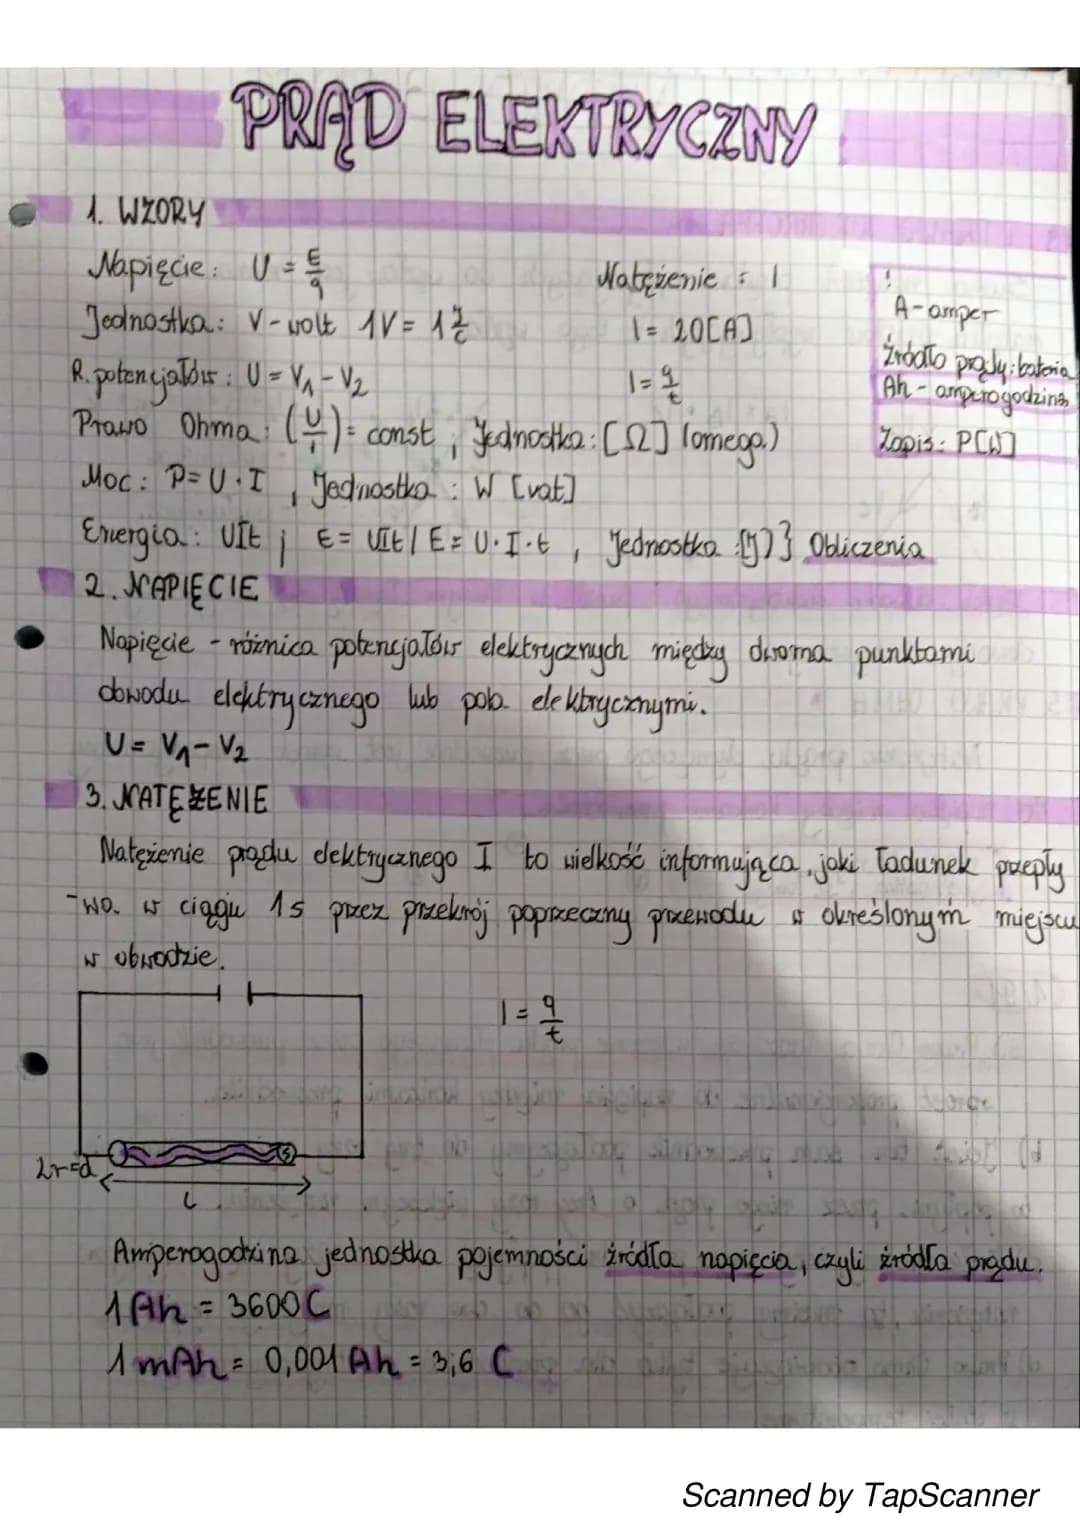 PRĄD ELEKTRYCZNY
1. WZORY
Napięcie: U = E/q
Natężenie = I
Jednostka: V - wolt 1V = 1 J/C
I = 20[A]
R. potencjałów: U = V1 - V2
I = q/t
Prawo Ohma: (U/I) = const, Jednostka: [Ω] (omega)
Moc: P = U · I, Jednostka: W [wat]
Energia: UIt; E = UIt / E = U · I · t, Jednostka: [J] } Obliczenia
!
A - amper
źródło prądu: bateria
Ah - amperogodzina
Zapis: P[W]
2. NAPIĘCIE
Napięcie - różnica potencjałów elektrycznych między dwoma punktami
obwodu elektrycznego lub pola elektrycznymi.
U = V1 - V2
3. NATĘŻENIE
Natężenie prądu elektrycznego I to wielkość informująca, jaki ładunek przepły
-wa w ciągu 1s przez przekrój poprzeczny przewodu w określonym miejscu
w obwodzie.
I = q/t
2r=d
l
Amperogodzina jednostka pojemności źródła napięcia, czyli źródła prądu.
1 Ah = 3600 C
1 mAh = 0,001 Ah = 3,6 C
Scanned by TapScanner